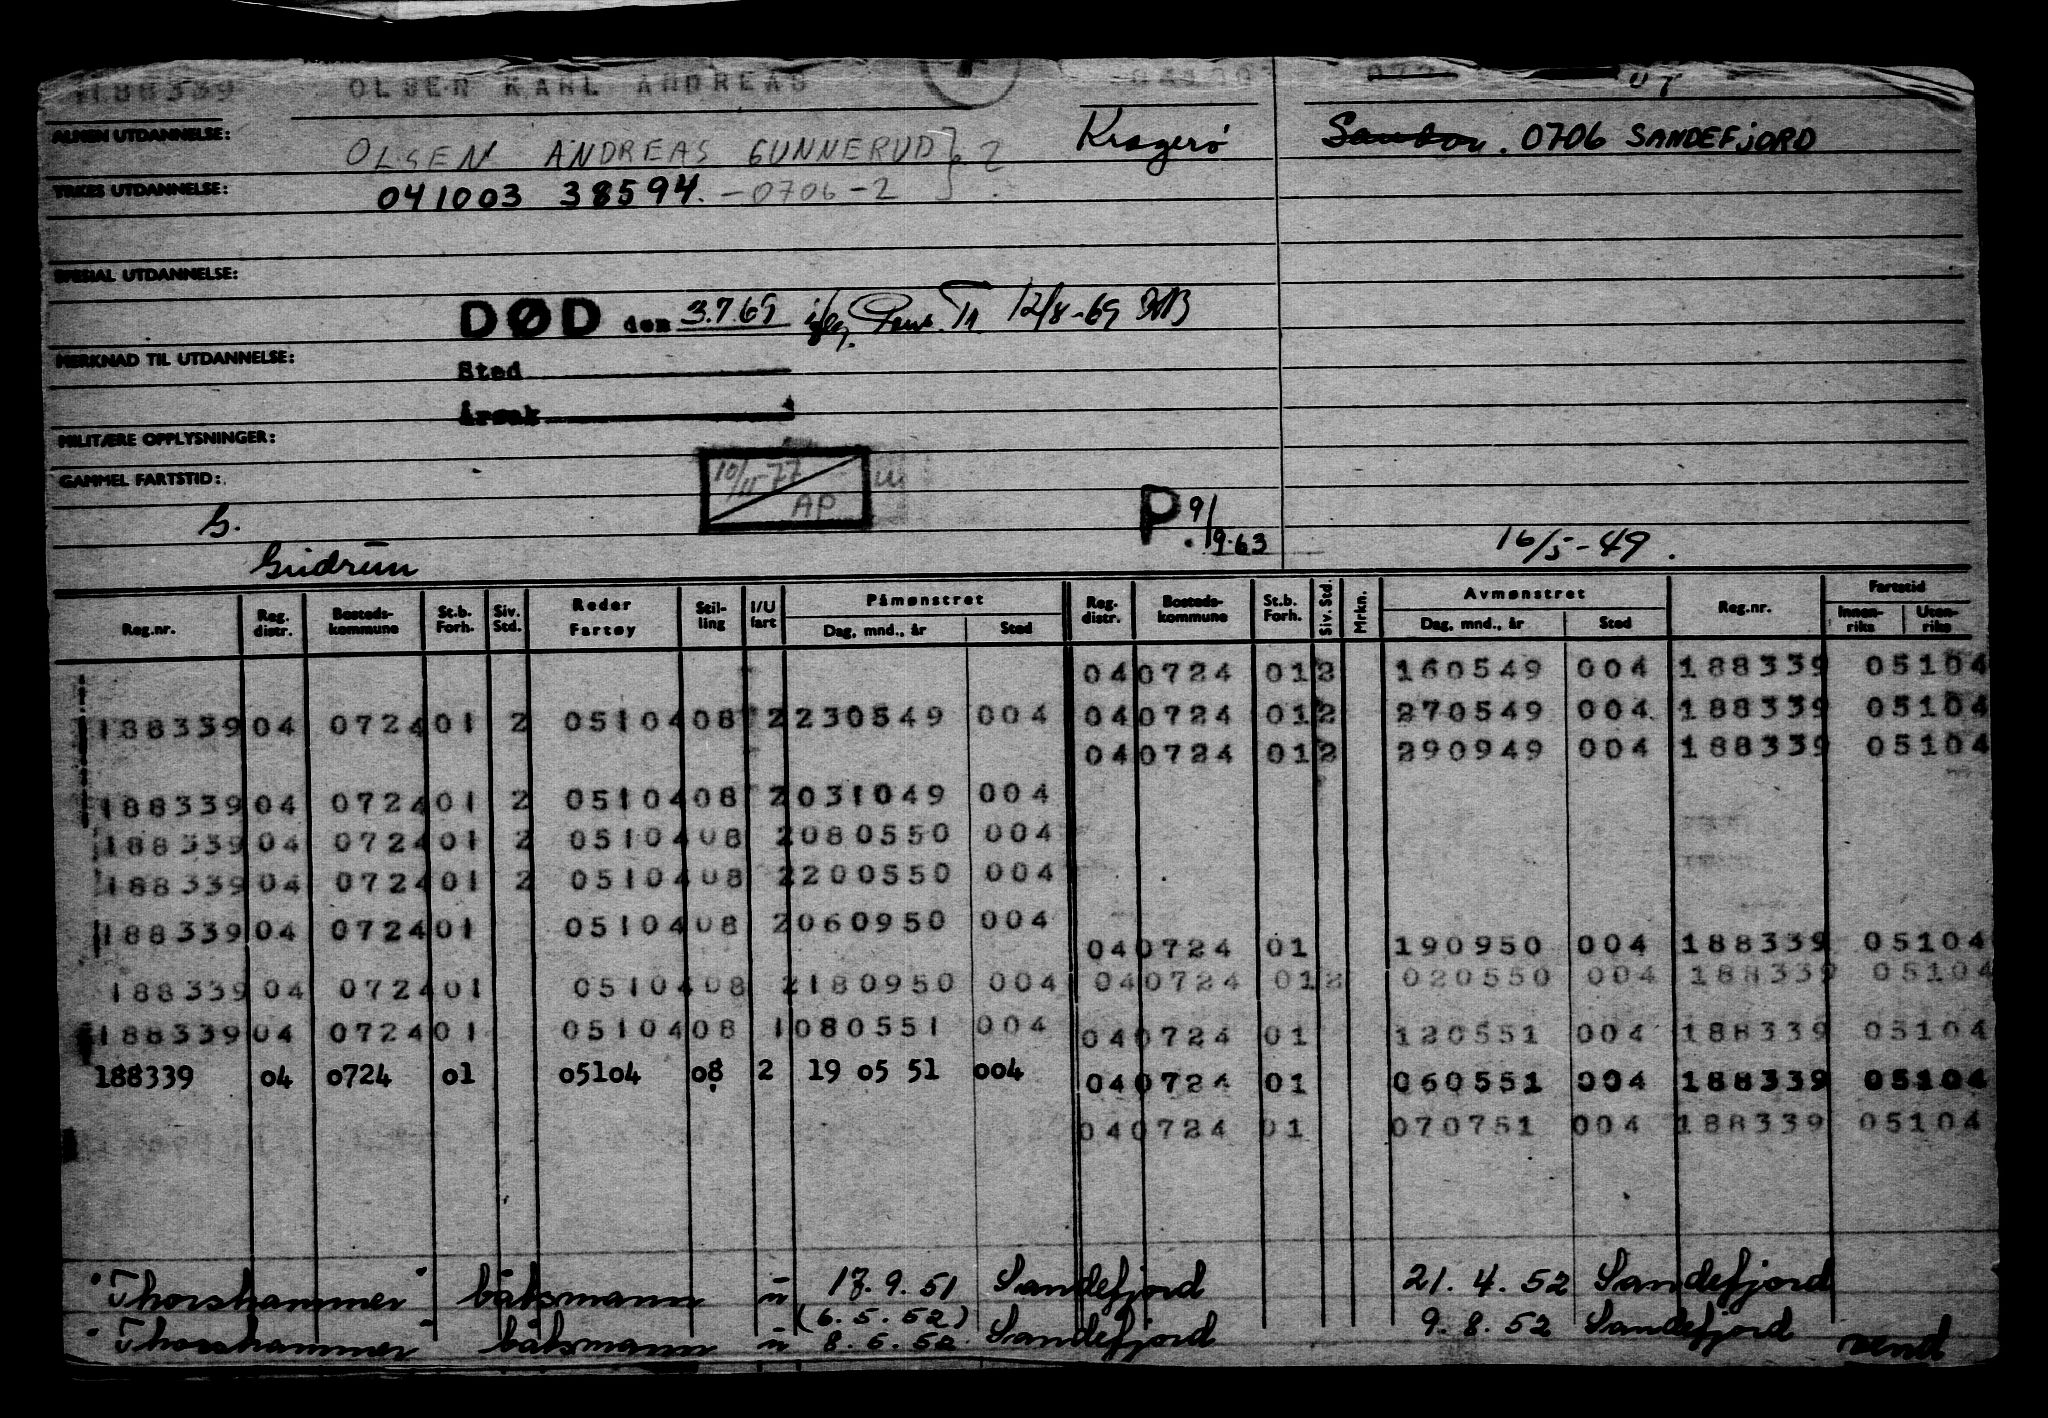 188339 OLSEN KARL ANDREAS
ALMEN UTDANNELSE: OLSEN ANDREAS GUNNERUD Kragerø 0706 SANDEFJORD
YRKES UTDANNELSE: 041003 38594. -0706-2
SPESIAL UTDANNELSE:
DØD den 3.7.69 12/8-69
MERKNAD TIL UTDANNELSE:
Sted
Årsak
MILITÆRE OPPLYSNINGER:
10/11-77
AP
GAMMEL FARTSTID:
G.
P. 9/9.63
16/5-49.
Gudrun
Reg.nr. Reg. distr. Bosteds-kommune St.b. Forh. Siv. Std. Reder Fartøy Stil-ling I/U fart Påmønstret Dag, mnd., år Sted Reg. distr. Bosteds-kommune St.b. Forh. Siv. Std. Mrkn. Avmønstret Dag, mnd., år Sted Reg.nr. Fartstid Innen-riks Uten-riks
04 0724 01 2 160549 004 188339 05104
188339 04 0724 01 2 05104 08 2 230549 004 04 0724 01 2 270549 004 188339 05104
04 0724 01 2 290949 004 188339 05104
188339 04 0724 01 2 05104 08 2 031049 004
188339 04 0724 01 2 05104 08 2 080550 004
188339 04 0724 01 2 05104 08 2 200550 004
188339 04 0724 01 05104 08 2 060950 004
04 0724 01 190950 004 188339 05104
188339 04 0724 01 05104 08 2 180950 004 04 0724 01 2 020550 004 188339 05104
188339 04 0724 01 05104 08 1 080551 004 04 0724 01 120551 004 188339 05104
188339 04 0724 01 05104 08 2 19 05 51 004 04 0724 01 060551 004 188339 05104
04 0724 01 070751 004 188339 05104
"Thorshammer" båtsmann u 17.9.51 Sandefjord 21.4.52 Sandefjord
(6.5.52)
"Thorshammer" båtsmann u 8.5.52 Sandefjord 9.8.52 Sandefjord vend